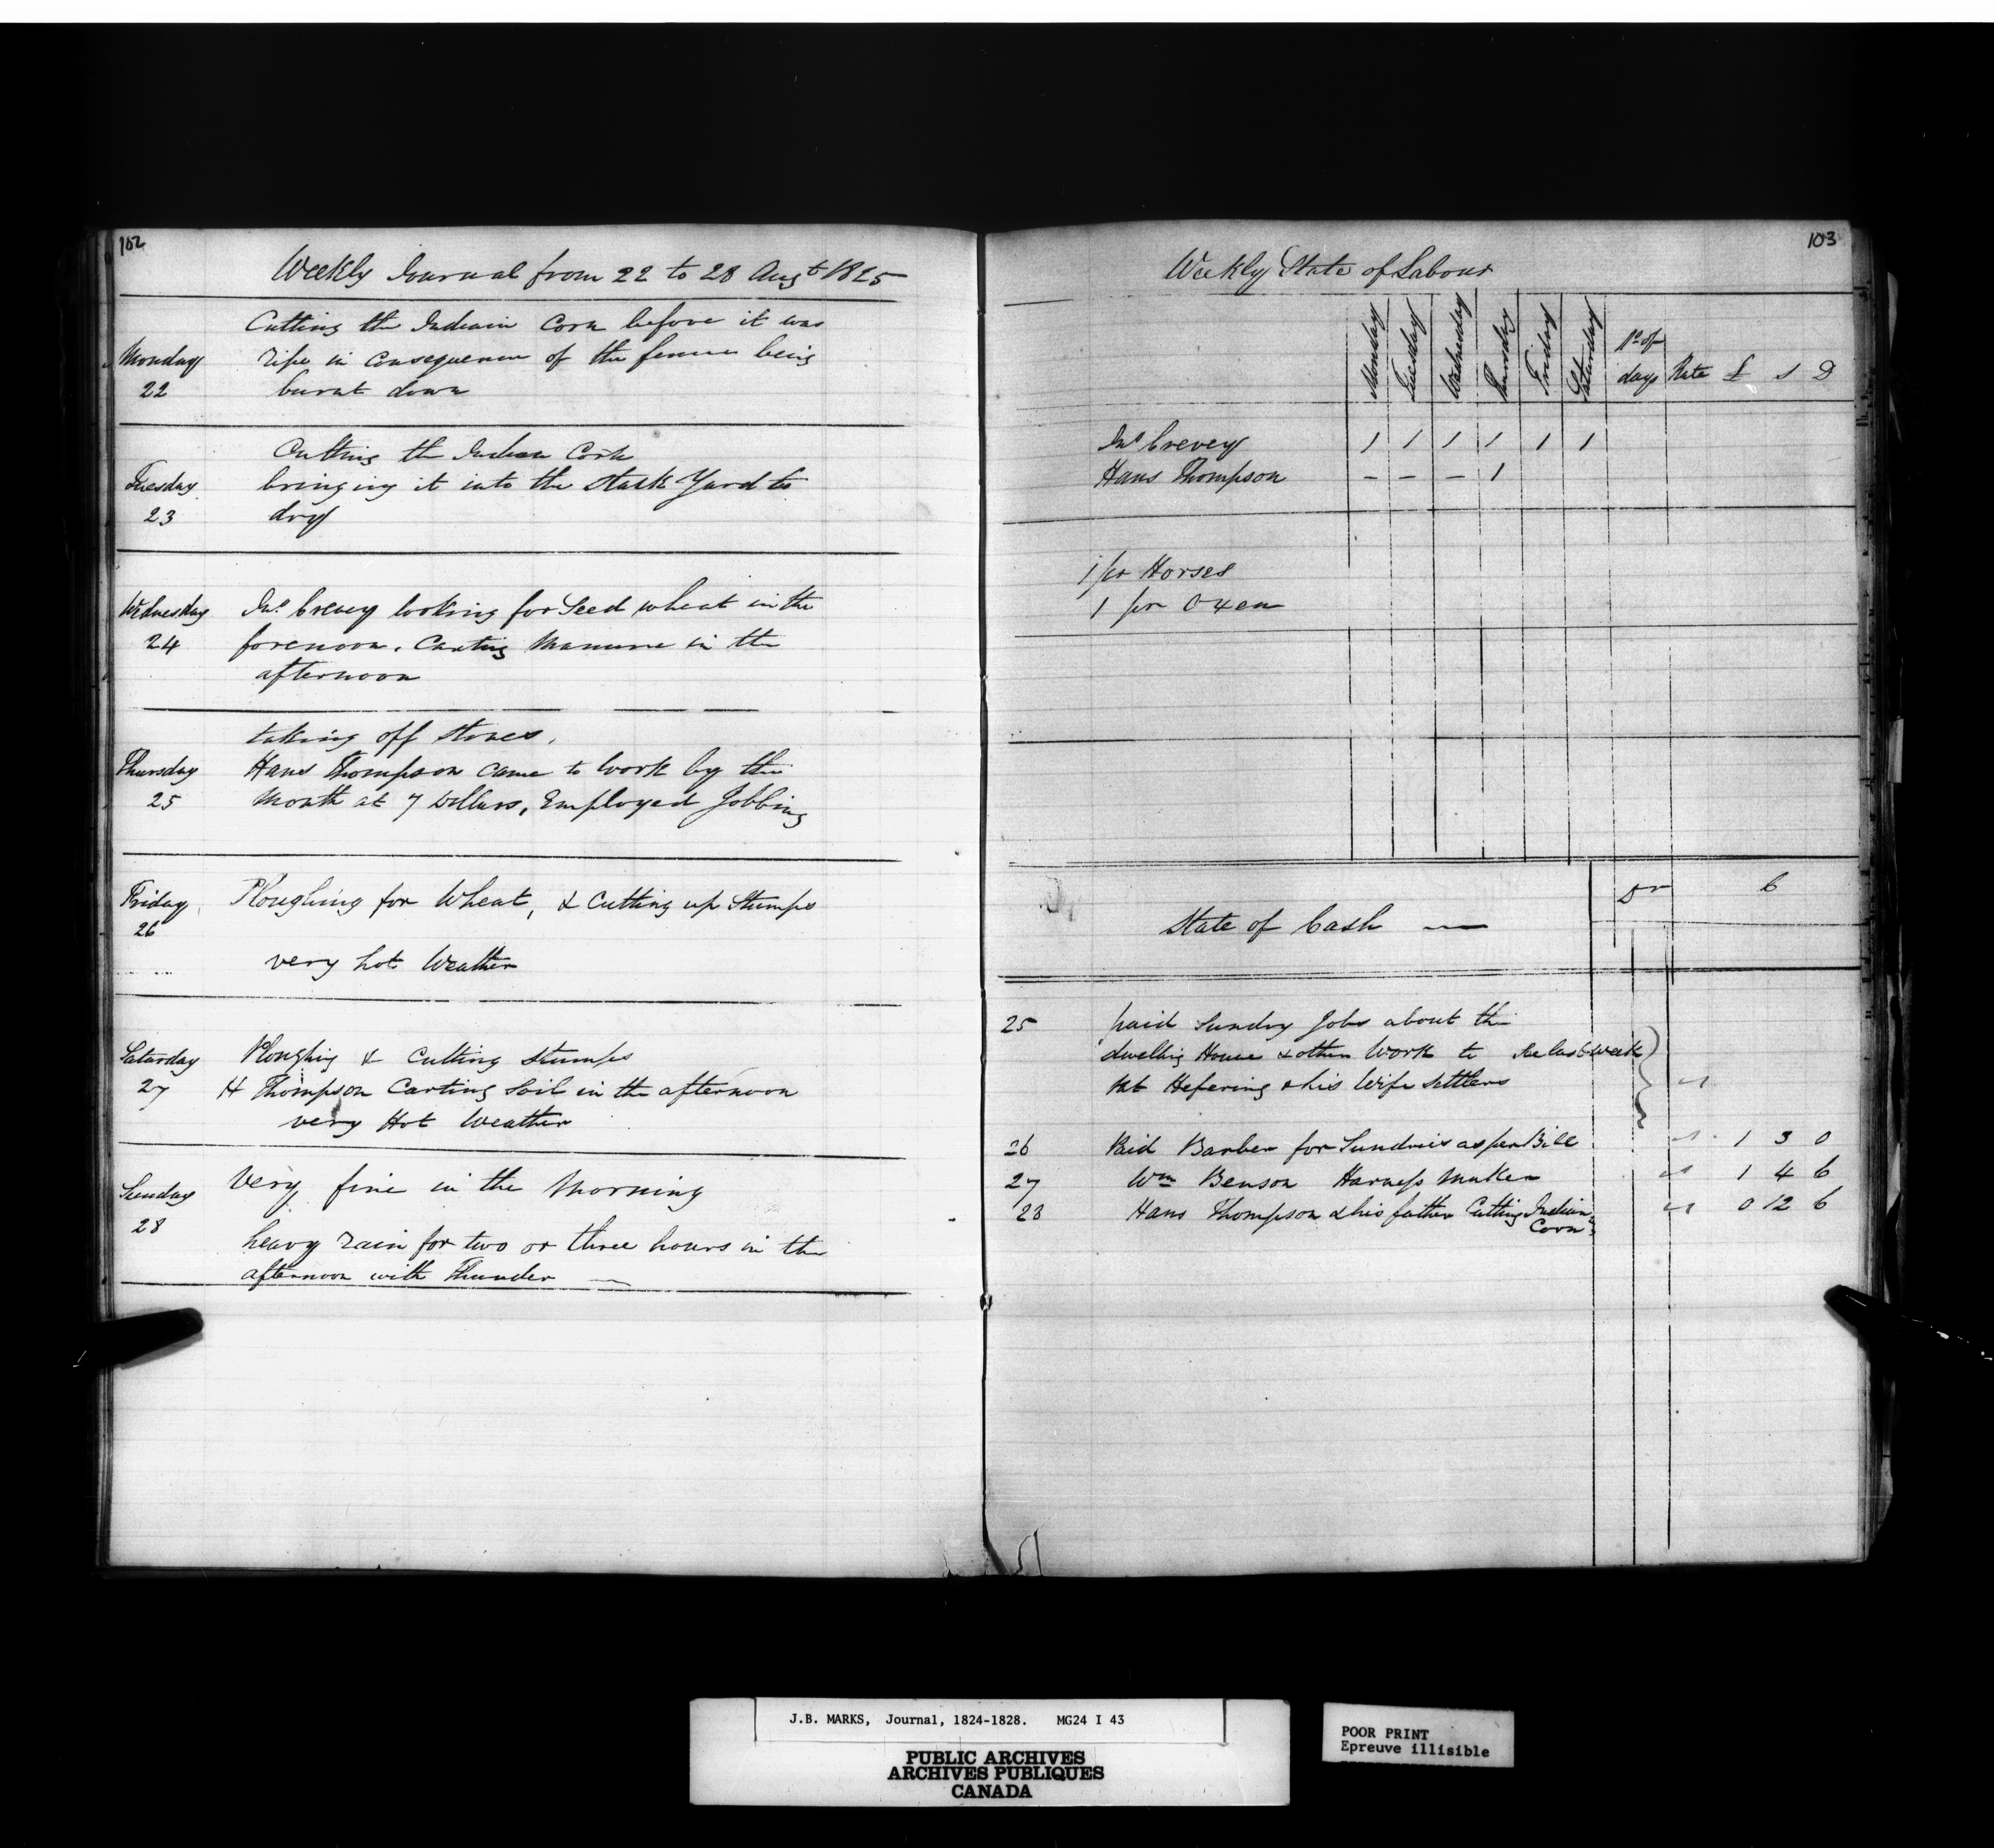 102
Weekly Journal from 22 to 28 Augt 1825
Cutting the Indian Corn before it was
Monday ripe in consequence of the fence being
22 burnt down
Cutting the Indian Corn
Tuesday bringing it into the Stack Yard to
23 dry
Wednesday Jno Crevey looking for Seed wheat in the
24 forenoon. Carting Manure in the
afternoon
taking off stones.
Thursday Hans Thompson came to work by the
25 Month at 7 Dollars, Employed Jobbing
Friday Ploughing for Wheat, & Cutting up Stumps
26
very hot Weather
Saturday Ploughing & Cutting Stumps
27 H Thompson Carting Soil in the afternoon
very Hot Weather
Sunday Very fine in the Morning
28
heavy rain for two or three hours in the
afternoon with Thunder —
103
Weekly State of Labour
Monday Tuesday Wednesday Thursday Friday Saturday No of days Rate £ S D
Jno Crevey 1 1 1 1 1 1
Hans Thompson – – – 1
1 pr Horses
1 pr Oxen
Dr C
State of Cash —
25 paid Sundry Jobs about the
dwelling House & other Work to See last week
Pat & his Wife Settlers
26 Paid Barber for Sundries as per Bill 1 3 0
27 Wm Benson Harness Maker 1 4 6
28 Hans Thompson & his father Cutting Indian 0 12 6
Corn
J.B. MARKS, Journal, 1824-1828. MG24 I 43
PUBLIC ARCHIVES
ARCHIVES PUBLIQUES
CANADA
POOR PRINT
Epreuve illisible